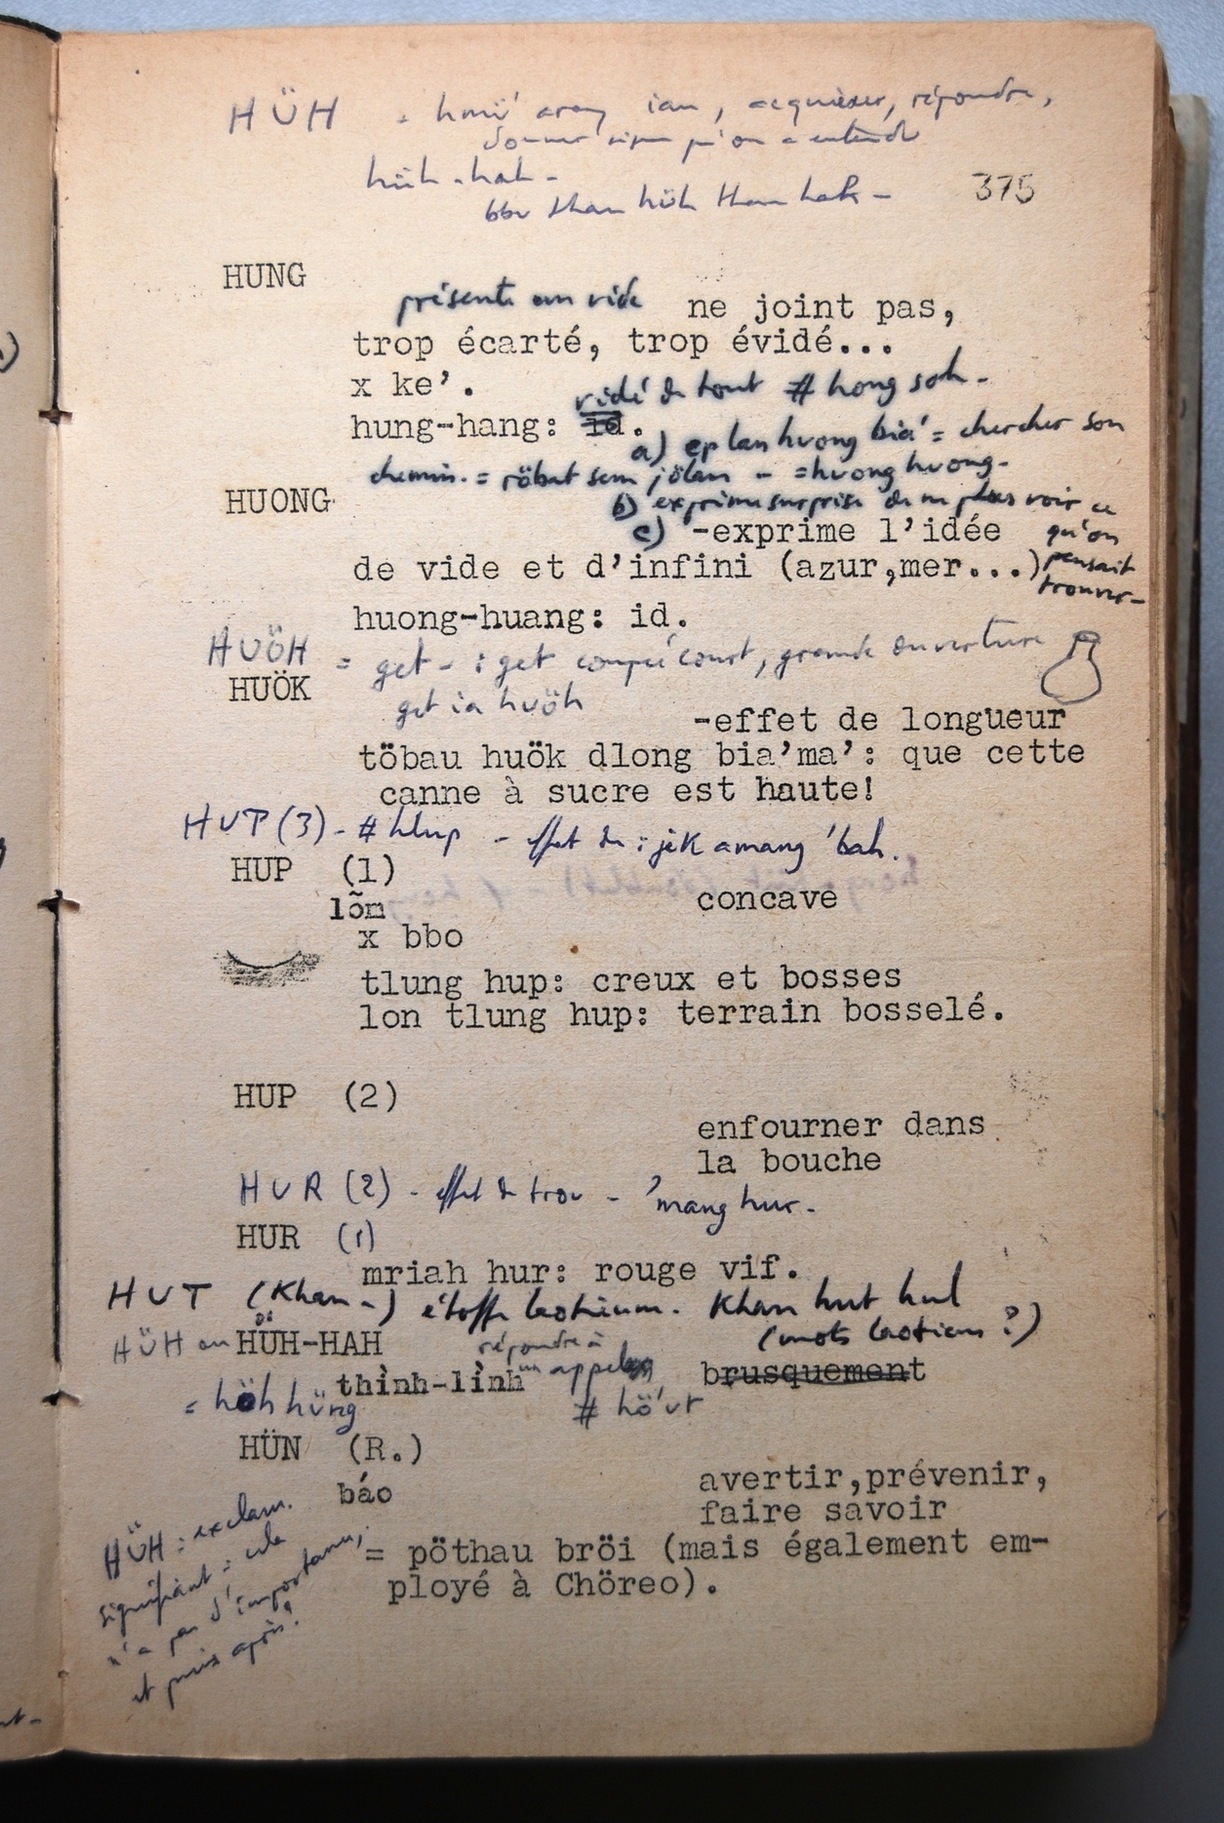 HÜH = hmữ arang ian, acquiescer, répondre,
donner signe qu'on a entendu
hüh-hah-
bbu than hüh than hah - 375
HUNG
présente un vide ne joint pas,
trop écarté, trop évidé...
x ke'.
vidé de tout # hong soh-
hung-hang: id.
a) ep lan huong bia' = chercher son
chemin. = röbat sem jölan - = huong huong-
b) exprime surprise de ne plus voir ce
qu'on
pensait
trouver-
HUONG
c) -exprime l'idée
de vide et d'infini (azur,mer...)
huong-huang: id.
HUÖH = get - : get coupé court, grande ouverture
get ia huöh
HUÖK
-effet de longueur
töbau huök dlong bia'ma': que cette
canne à sucre est haute!
HUP (3) - # hlup - effet de : jek amang 'bah.
HUP (1)
lõm concave
x bbo
tlung hup: creux et bosses
lon tlung hup: terrain bosselé.
HUP (2)
enfourner dans
la bouche
HUR (2) - effet de trou - 'mang hur-
HUR (1)
mriah hur: rouge vif.
HUT (Khan -) étoffe laotienne. Khan hut hul
(mots laotiens ?)
HÜH ou HÜH-HAH répondre à
un appel
thình-lình brusquement
= höh hüng # hö'ut
HÜN (R.)
báo avertir,prévenir,
faire savoir
= pöthau bröi (mais également em-
ployé à Chöreo).
HÜH : exclam.
signifiant = cela
n'a pas d'importance,
et puis après?